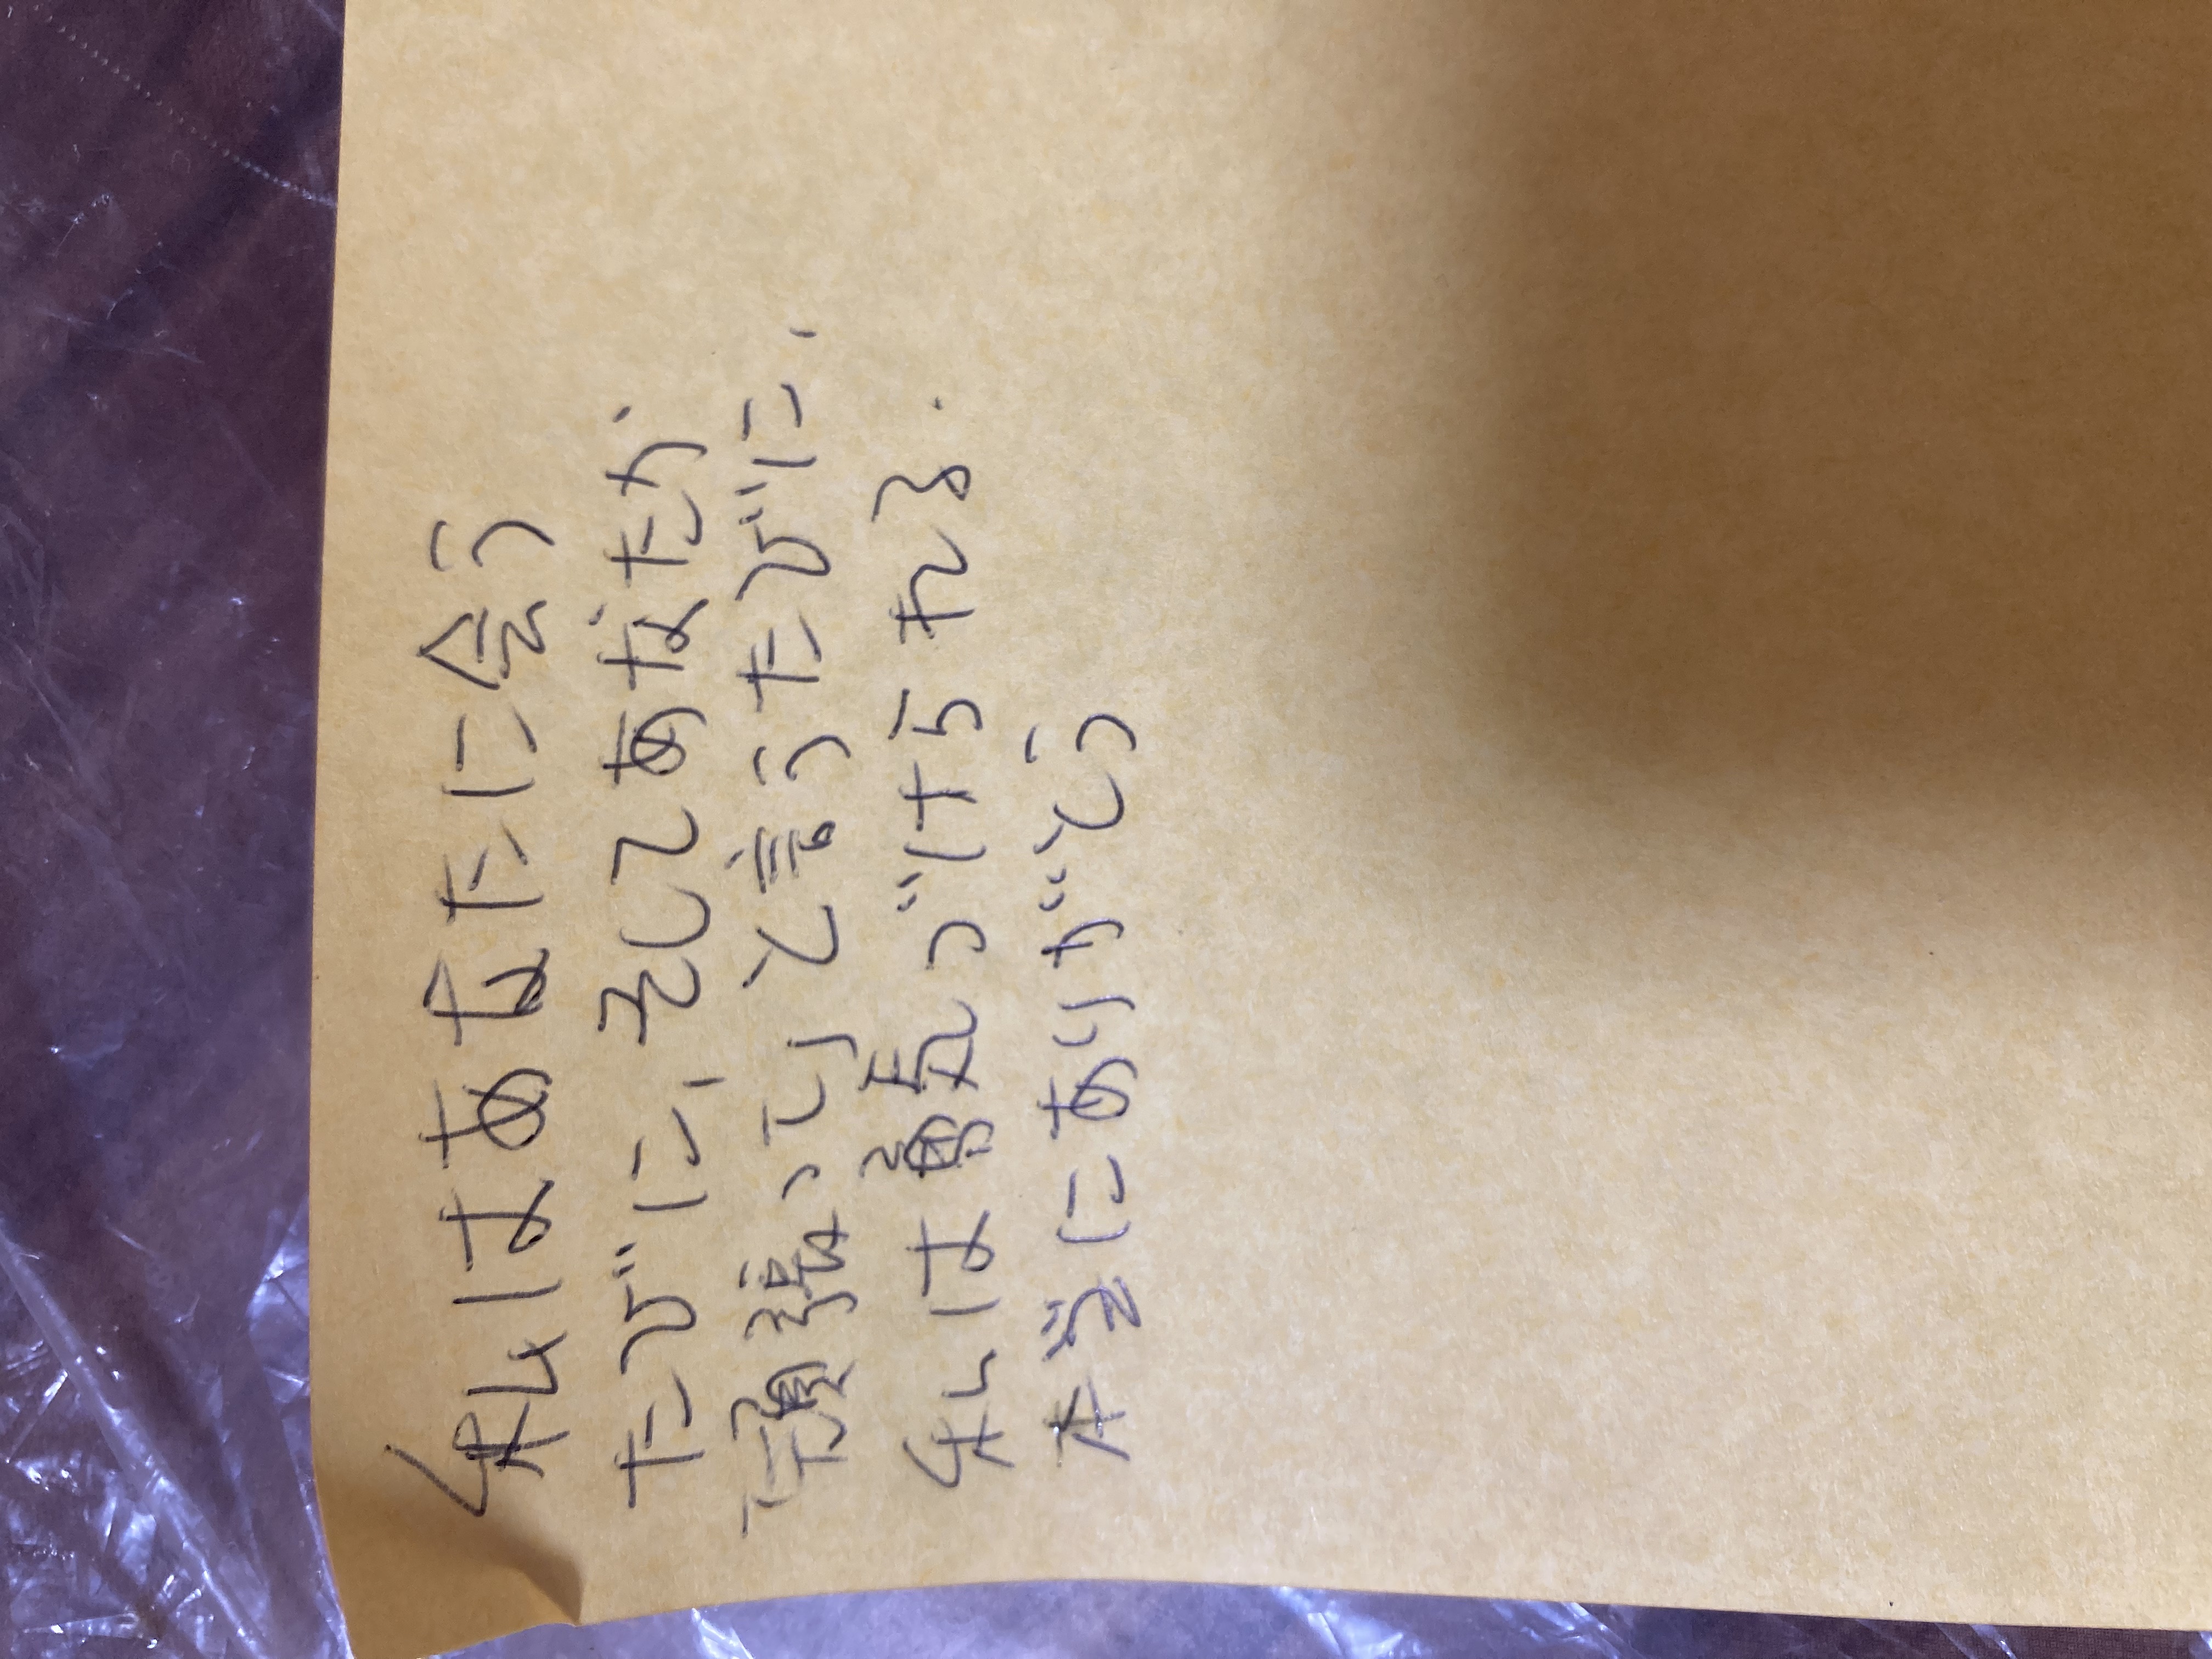 私はあなたに会う
たびに、そしてあなたが
「頑張って」と言うたびに、
私は勇気づけられる.
本当にありがとう